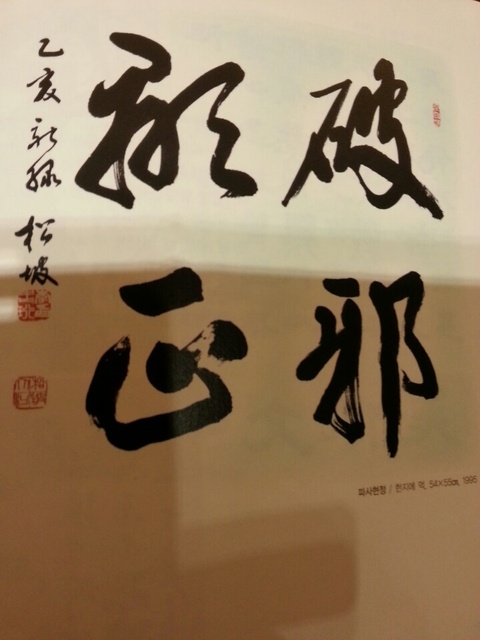 破邪
顯正
乙亥新綠 松坡
파사현정 / 한지에 먹, 54×55㎝, 1995